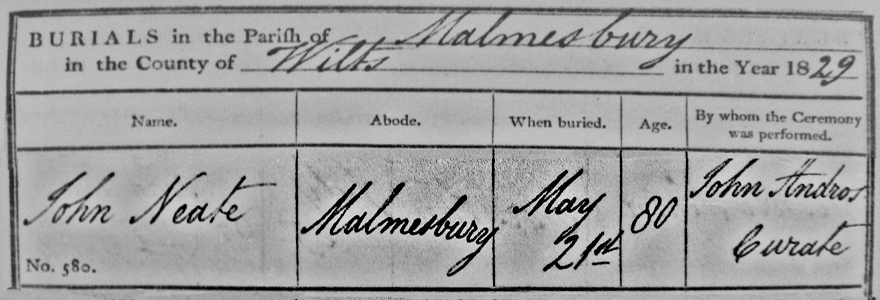 BURIALS in the Pariſh of Malmesbury
in the County of Wilts in the Year 1829
Name. Abode. When buried. Age. By whom the Ceremony was performed.
John Neate Malmesbury May 21st 80 John Andros Curate
No. 580.